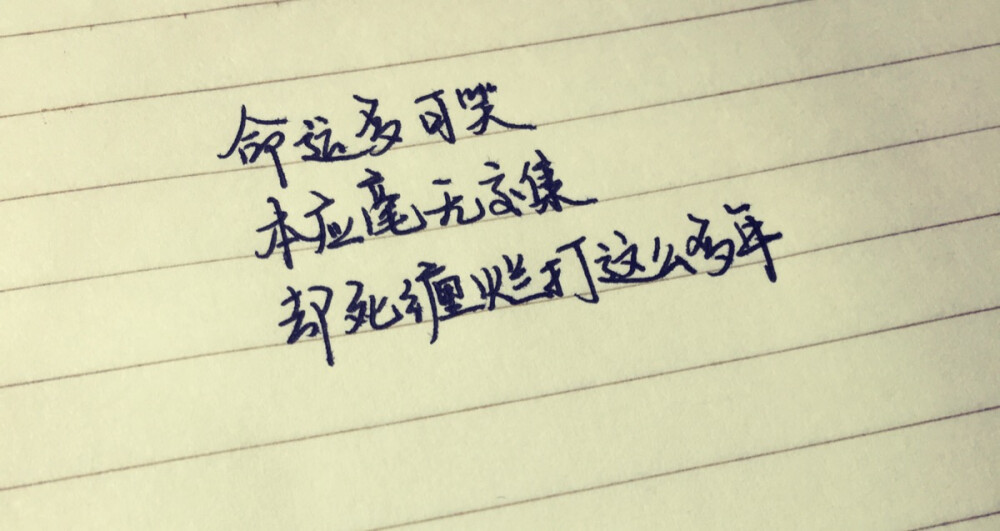 命运多可笑
本应毫无交集
却死缠烂打这么多年